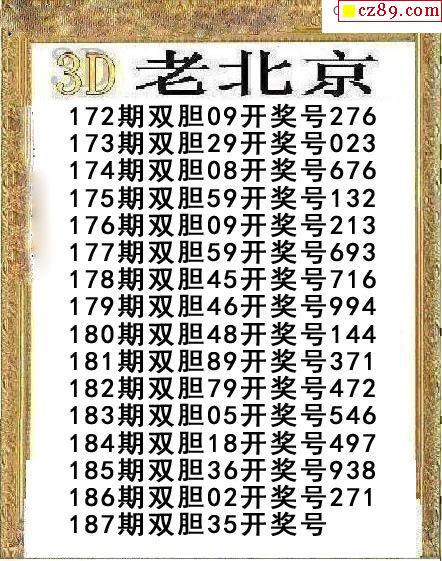 cz89.com
3D 老北京
172期双胆09开奖号276
173期双胆29开奖号023
174期双胆08开奖号676
175期双胆59开奖号132
176期双胆09开奖号213
177期双胆59开奖号693
178期双胆45开奖号716
179期双胆46开奖号994
180期双胆48开奖号144
181期双胆89开奖号371
182期双胆79开奖号472
183期双胆05开奖号546
184期双胆18开奖号497
185期双胆36开奖号938
186期双胆02开奖号271
187期双胆35开奖号